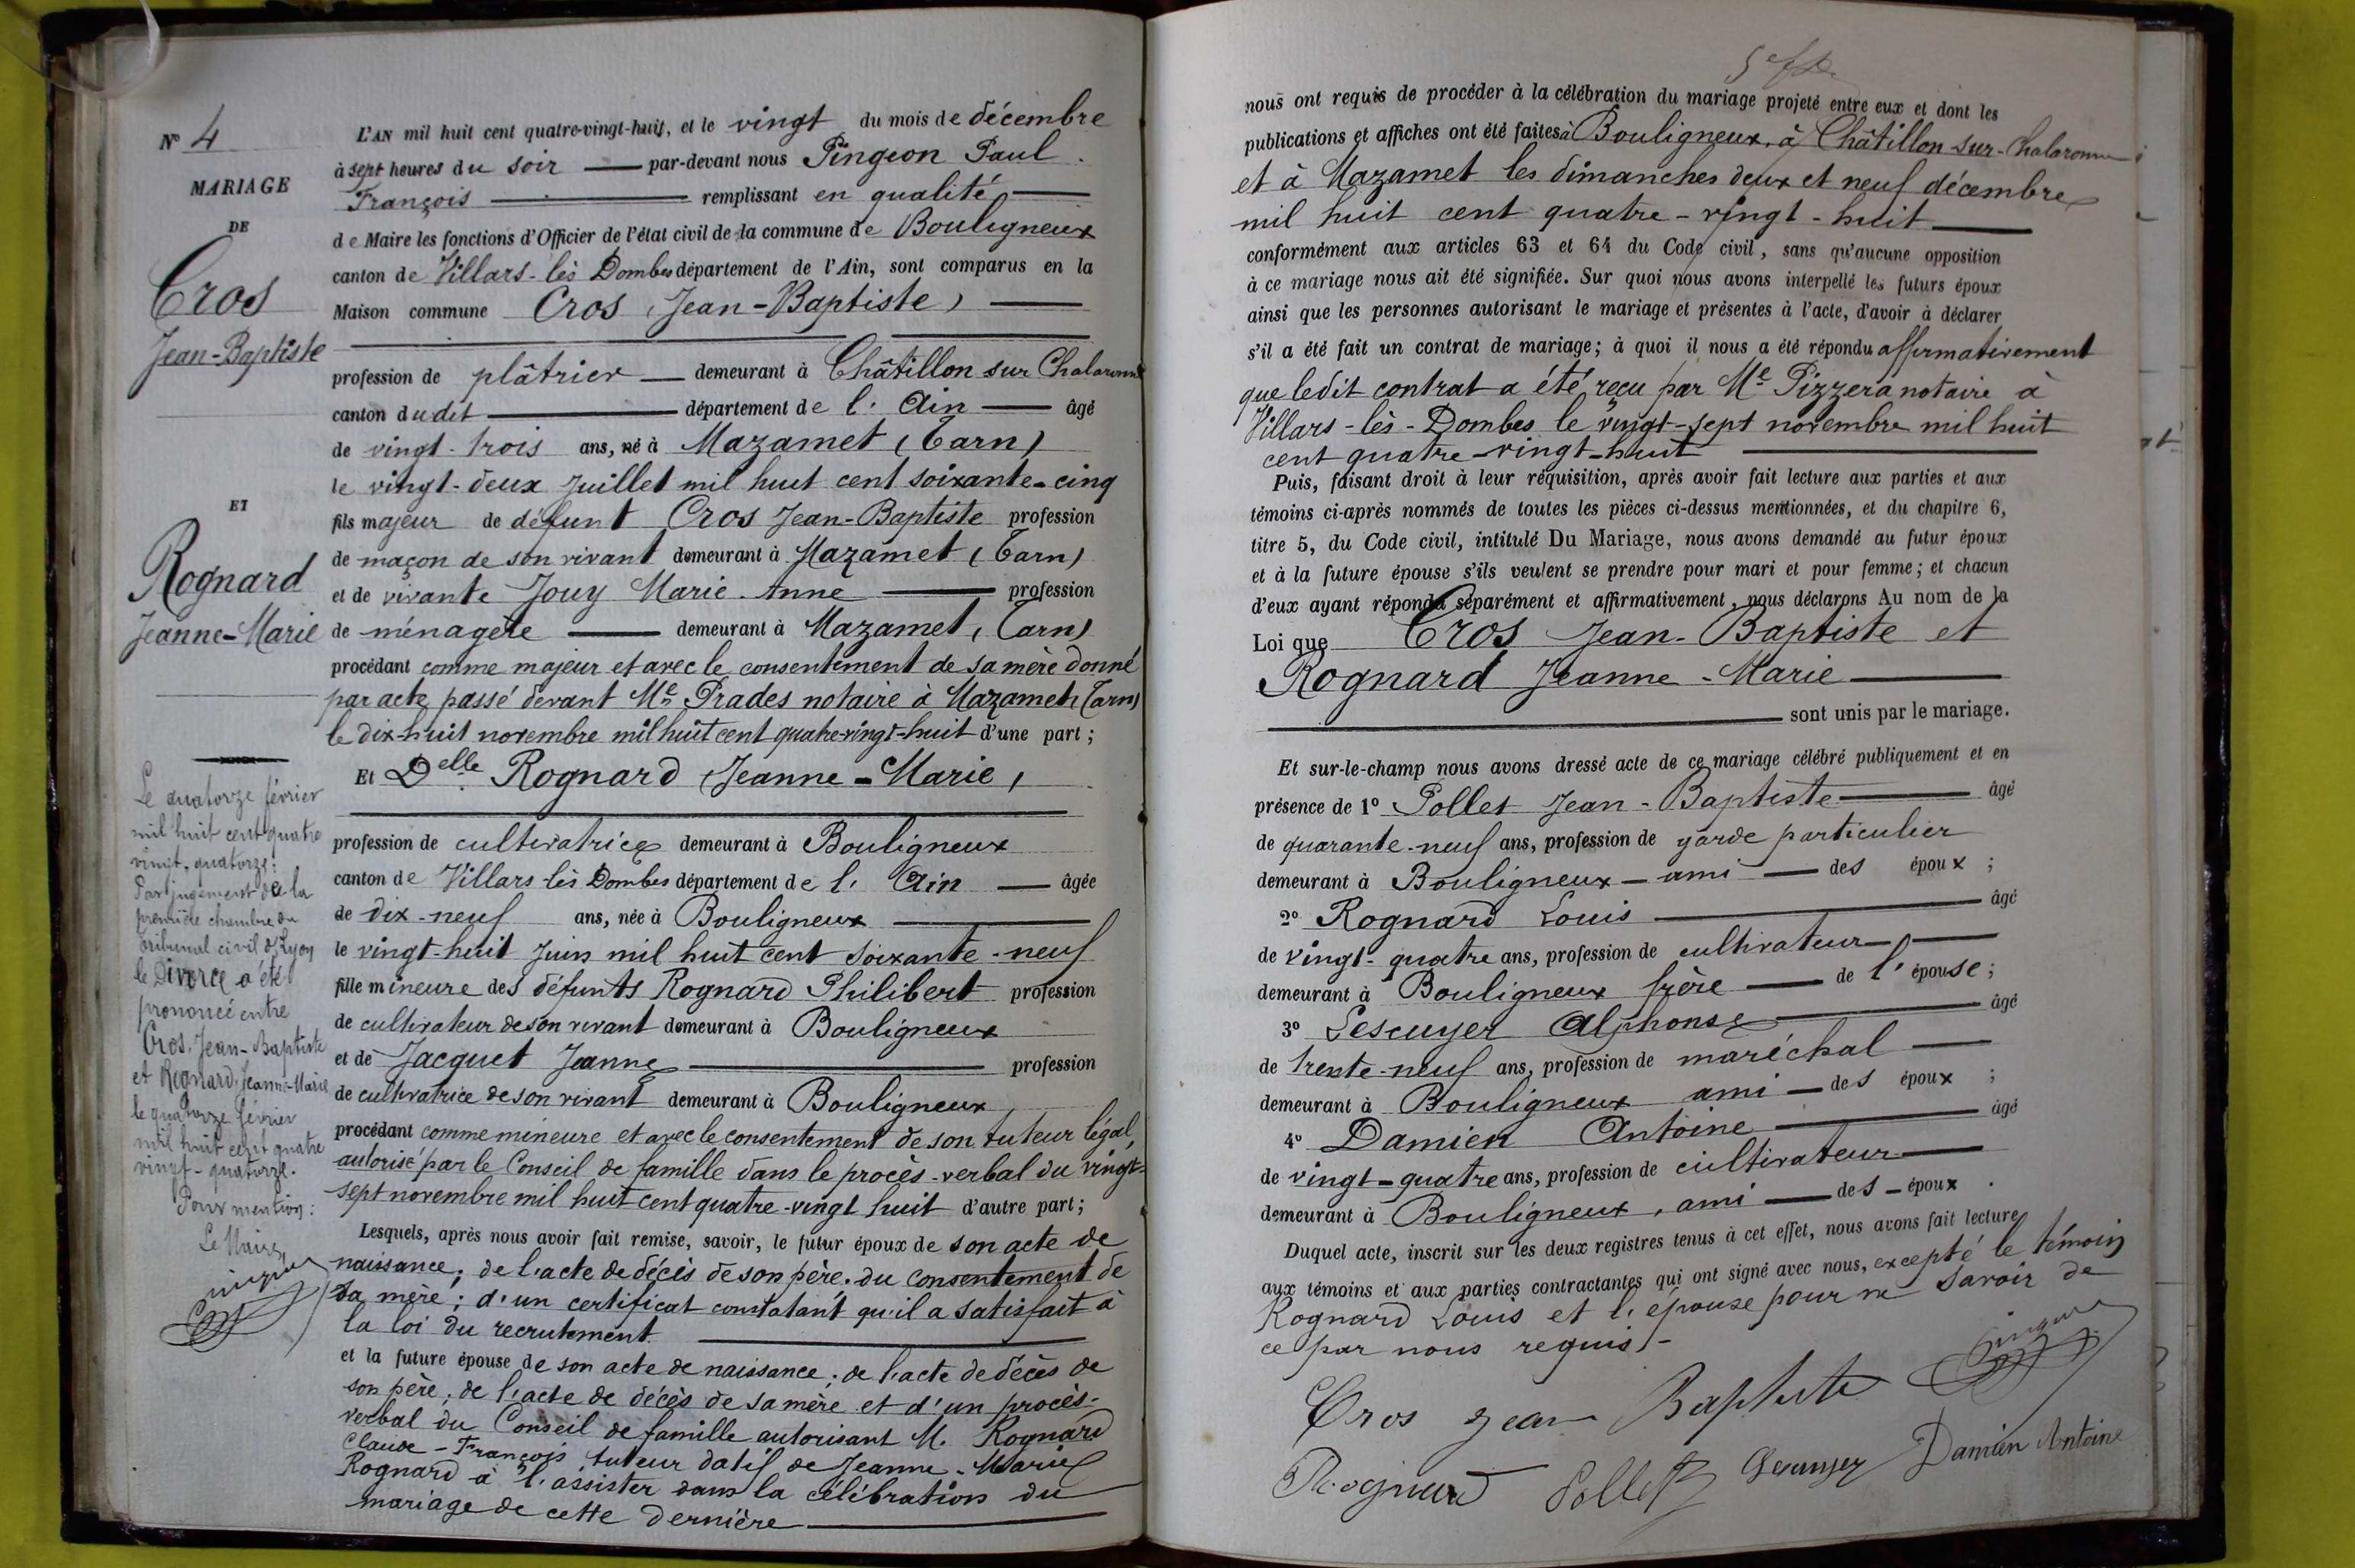 Nº 4
MARIAGE
DE
Cros
Jean-Baptiste
ET
Rognard
Jeanne-Marie
Le quatorze février
mil huit cent quatre
vingt-quatorze:
Par jugement de la
première chambre du
Tribunal civil de Lyon
le Divorce a été
prononcé entre
Cros Jean-Baptiste
et Rognard Jeanne-Marie
le quatorze février
mil huit cent quatre
vingt-quatorze.
Pour mention:
Le Maire,
L'AN mil huit cent quatre-vingt-huit, et le vingt du mois de décembre
à sept heures du soir par-devant nous Pingeon Paul
François remplissant en qualité
de Maire les fonctions d'Officier de l'état civil de la commune de Bouligneux
canton de Villars-lès Dombes département de l'Ain, sont comparus en la
Maison commune Cros (Jean-Baptiste)
profession de plâtrier demeurant à Châtillon sur Chalaronne
canton dudit département de l'Ain âgé
de vingt-trois ans, né à Mazamet (Tarn)
le vingt-deux Juillet mil huit cent soixante-cinq
fils majeur de défunt Cros Jean-Baptiste profession
de maçon de son vivant demeurant à Mazamet (Tarn)
et de vivante Jouy Marie-Anne profession
de ménagère demeurant à Mazamet, (Tarn)
procédant comme majeur et avec le consentement de sa mère donné
par acte passé devant Me Prades notaire à Mazamet (Tarn)
le dix-huit novembre mil huit cent quatre-vingt-huit d'une part;
Et Delle Rognard (Jeanne-Marie)
profession de cultivatrice demeurant à Bouligneux
canton de Villars-lès Dombes département de l'Ain âgée
de dix-neuf ans, née à Bouligneux
le vingt-huit Juin mil huit cent soixante-neuf
fille mineure des défunts Rognard Philibert profession
de cultivateur de son vivant demeurant à Bouligneux
et de Jacquet Jeanne profession
de cultivatrice de son vivant demeurant à Bouligneux,
procédant comme mineure et avec le consentement de son tuteur légal,
autorisé par le Conseil de famille dans le procès-verbal du vingt-
sept novembre mil huit cent quatre-vingt huit d'autre part;
Lesquels, après nous avoir fait remise, savoir, le futur époux de son acte de
naissance; de l'acte de décès de son père. du consentement de
sa mère; d'un certificat constatant qu'il a satisfait à
la loi du recrutement
et la future épouse de son acte de naissance; de l'acte de décès de
son père; de l'acte de décès de sa mère et d'un procès-
verbal du Conseil de famille autorisant M. Rognard
Claude-François tuteur datif de Jeanne-Marie
Rognard à l'assister dans la célébration du
mariage de cette dernière
nous ont requis de procéder à la célébration du mariage projeté entre eux et dont les
publications et affiches ont été faites à Bouligneux, à Châtillon-sur-Chalaronne
et à Mazamet les dimanches deux et neuf décembre
mil huit cent quatre-vingt-huit
conformément aux articles 63 et 64 du Code civil, sans qu'aucune opposition
à ce mariage nous ait été signifiée. Sur quoi nous avons interpellé les futurs époux
ainsi que les personnes autorisant le mariage et présentes à l'acte, d'avoir à déclarer
s'il a été fait un contrat de mariage; à quoi il nous a été répondu affirmativement
que ledit contrat a été reçu par Me Pizzera notaire à
Villars-lès-Dombes le vingt-sept novembre mil huit
cent quatre-vingt-huit
Puis, faisant droit à leur réquisition, après avoir fait lecture aux parties et aux
témoins ci-après nommés de toutes les pièces ci-dessus mentionnées, et du chapitre 6,
titre 5, du Code civil, intitulé Du Mariage, nous avons demandé au futur époux
et à la future épouse s'ils veulent se prendre pour mari et pour femme; et chacun
d'eux ayant répondu séparément et affirmativement, nous déclarons Au nom de la
Loi que Cros Jean-Baptiste et
Rognard Jeanne-Marie
sont unis par le mariage.
Et sur-le-champ nous avons dressé acte de ce mariage célébré publiquement et en
présence de 1º Pollet Jean-Baptiste âgé
de quarante-neuf ans, profession de garde particulier
demeurant à Bouligneux ami des époux;
2º Rognard Louis âgé
de vingt-quatre ans, profession de cultivateur
demeurant à Bouligneux frère de l'épouse;
3º Lescuyer Alphonse âgé
de trente-neuf ans, profession de maréchal
demeurant à Bouligneux ami des époux;
4º Damien Antoine âgé
de vingt-quatre ans, profession de cultivateur
demeurant à Bouligneux, ami des époux.
Duquel acte, inscrit sur les deux registres tenus à cet effet, nous avons fait lecture
aux témoins et aux parties contractantes qui ont signé avec nous, excepté le témoin
Rognard Louis et l'épouse pour ne savoir de
ce par nous requis.
Cros Jean Baptiste
Rognard Pollet Lescuyer Damien Antoine